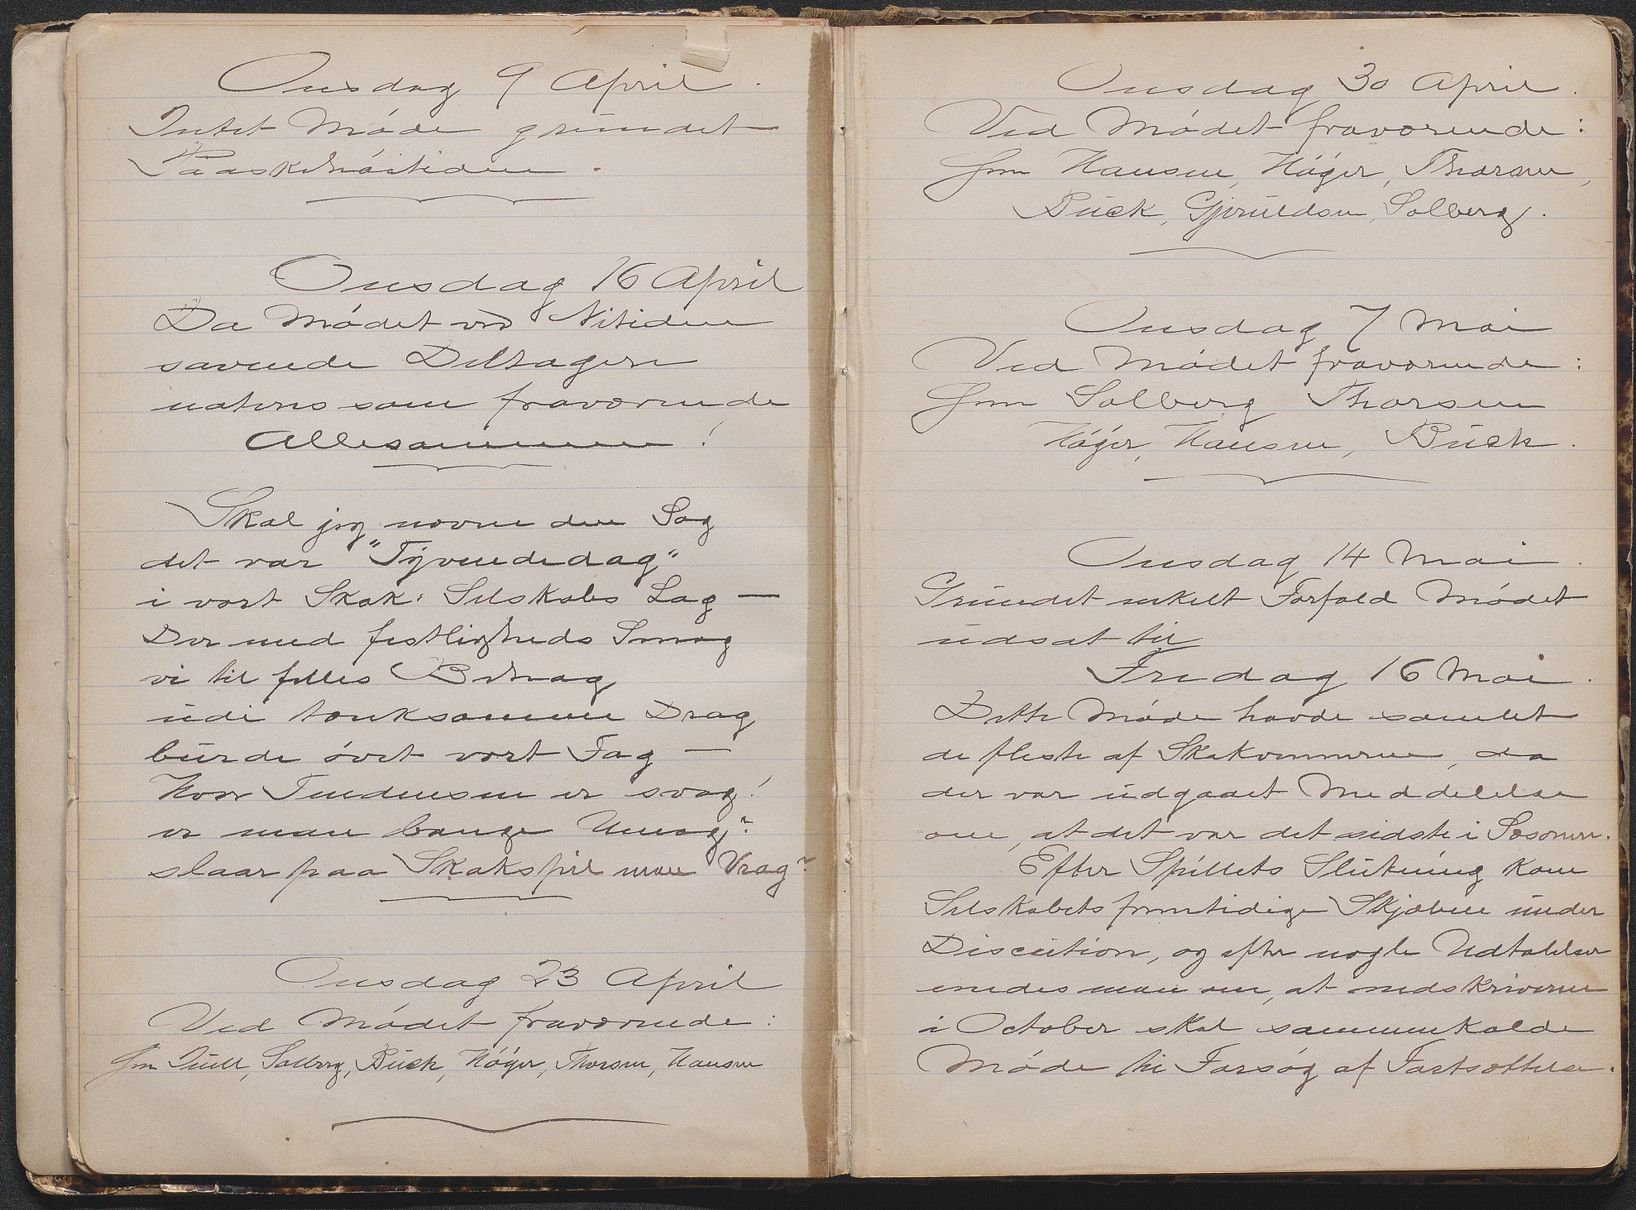 Onsdag 9 April.
Intet Møde grundet
Paaskehøitiden.
Onsdag 16 April
Da Mødet ved Nitiden
savnede Deltagere
noteres som fraværende
Allesammen!
Skal jeg nævne den Sag
det var "Tyvendedag"
i vort Skak: Selskabs Lag —
Der med festligheds Smag
vi til fælles Behag
udi tænksomme Drag
burde øvet vort Fag —
Hvor Tendensen er svag!
er man bange Umag?
slaar paa Skakspil man Vrag?
Onsdag 23 April
Ved Mødet fraværende:
Juell, Solberg, Buck, Høyer, Thorsen, Hansen
Onsdag 30 April.
Ved Mødet fraværende:
Hansen, Høyer, Thorsen,
Buck, Gjeruldsen, Solberg.
Onsdag 7 Mai
Ved Mødet fraværende:
Solberg Thorsen
Høyer, Hansen, Buck.
Onsdag 14 Mai.
Grundet enkelt Forfald Mødet
udsat til
Fredag 16 Mai.
Dette Møde havde samlet
de fleste af Skakvennerne, da
der var udgaaet Meddelelse
om, at det var det sidste i Sæsonen.
Efter Spillets Slutning kom
Selskabets fremtidige Skjæbne under
Discution, og efter nogle Udtalelser
enedes man om, at nedskriveren
i October skal sammenkalde
Møde til Forsøg af Fortsættelse.